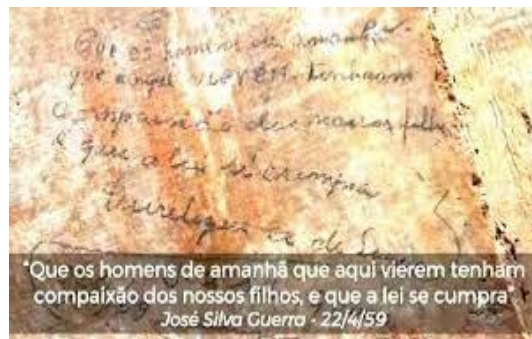 Que os homens de amanhã
que aqui vierem tenham
compaixão dos nossos filhos
e que a lei se cumpra
"Que os homens de amanhã que aqui vierem tenham
compaixão dos nossos filhos, e que a lei se cumpra"
José Silva Guerra - 22/4/59